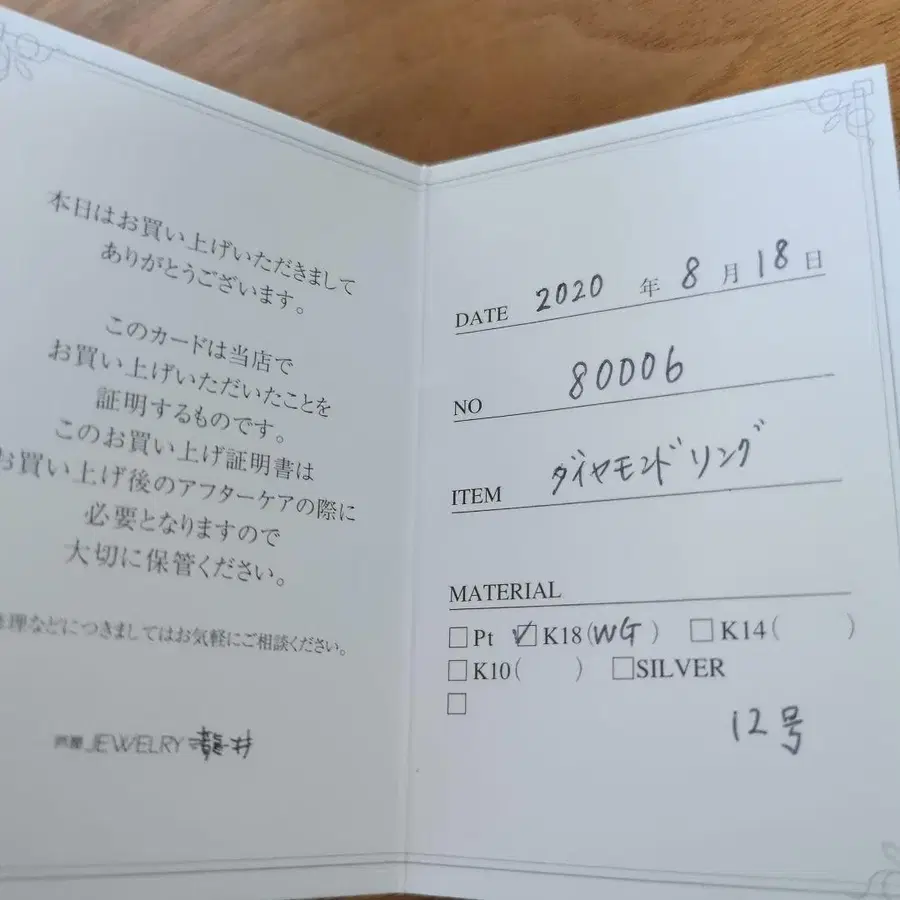 本日はお買い上げいただきまして
ありがとうございます。
このカードは当店で
お買い上げいただいたことを
証明するものです。
このお買い上げ証明書は
お買い上げ後のアフターケアの際に
必要となりますので
大切に保管ください。
修理などにつきましてはお気軽にご相談ください。
JEWELRY
DATE 2020 年 8 月 18 日
NO 80006
ITEM ダイヤモンドリング
MATERIAL
□Pt ☑K18(WG) □K14( )
□K10( ) □SILVER
□
12号